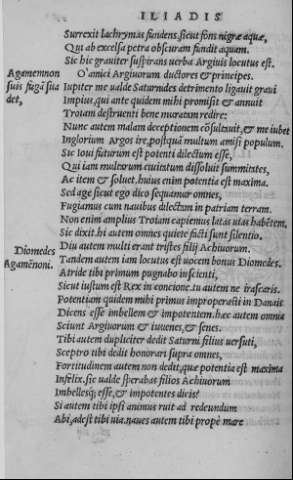 ILIADIS
Surrexit lachrymas fundens, sicut fons nigræ aquæ,
Qui ab excelsa petra obscuram fundit aquam.
Sic hic grauiter suspirans uerba Argiuis locutus est.
Agamemnon suis fugã sua det,
O' amici Argiuorum ductores & principes.
Iupiter me ualde Saturnides detrimento ligauit graui
Impius, qui ante quidem mihi promisit & annuit
Troiam destruenti bene muratam redire:
Nunc autem malam deceptionem cõsuluit, & me iubet
Inglorium Argos ire, postquã multum amisi populum.
Sic Ioui futurum est potenti dilectum esse,
Qui iam multarum ciuitatum dissoluit summitates,
Ac item & soluet. huius enim potentia est maxima.
Sed age sicut ego dico sequamur omnes,
Fugiamus cum nauibus dilectam in patriam terram.
Non enim amplius Troiam capiemus latas uias habẽtem,
Sic dixit. hi autem omnes quiete facti sunt silentio.
Diu autem multi erant tristes filij Achiuorum.
Diomedes Agamẽnoni.
Tandem autem iam locutus est uocem bonus Diomedes.
Atride tibi primum pugnabo inscienti,
Sicut iustum est Rex in concione. tu autem ne irascaris.
Potentiam quidem mihi primus improperasti in Danais
Dicens esse imbellem & impotentem. hæc autem omnia
Sciunt Argiuorum & iuuenes, & senes.
Tibi autem dupliciter dedit Saturni filius uersuti,
Sceptro tibi dedit honorari supra omnes,
Fortitudinem autem non dedit, quæ potentia est maxima
Infelix. sic ualde sperabas filios Achiuorum
Imbellesq́; esse, & impotentes dicis?
Si autem tibi ipsi animus ruit ad redeundum
Abi, adest tibi uia. naues autem tibi prope mare